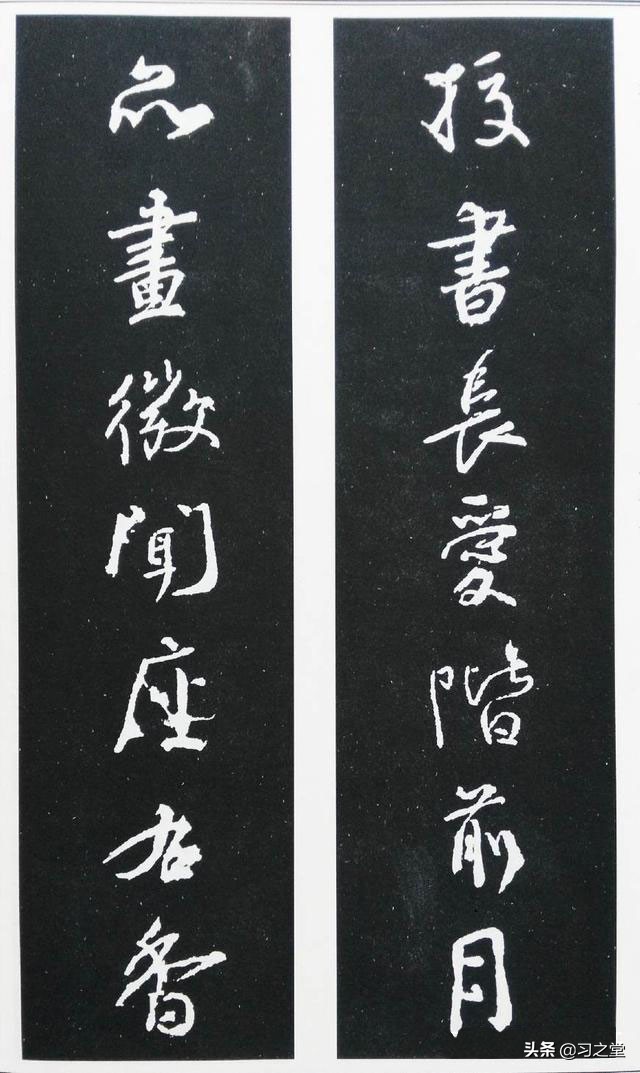 授書長愛階前月
品畫微聞座右香
头条 @习之堂